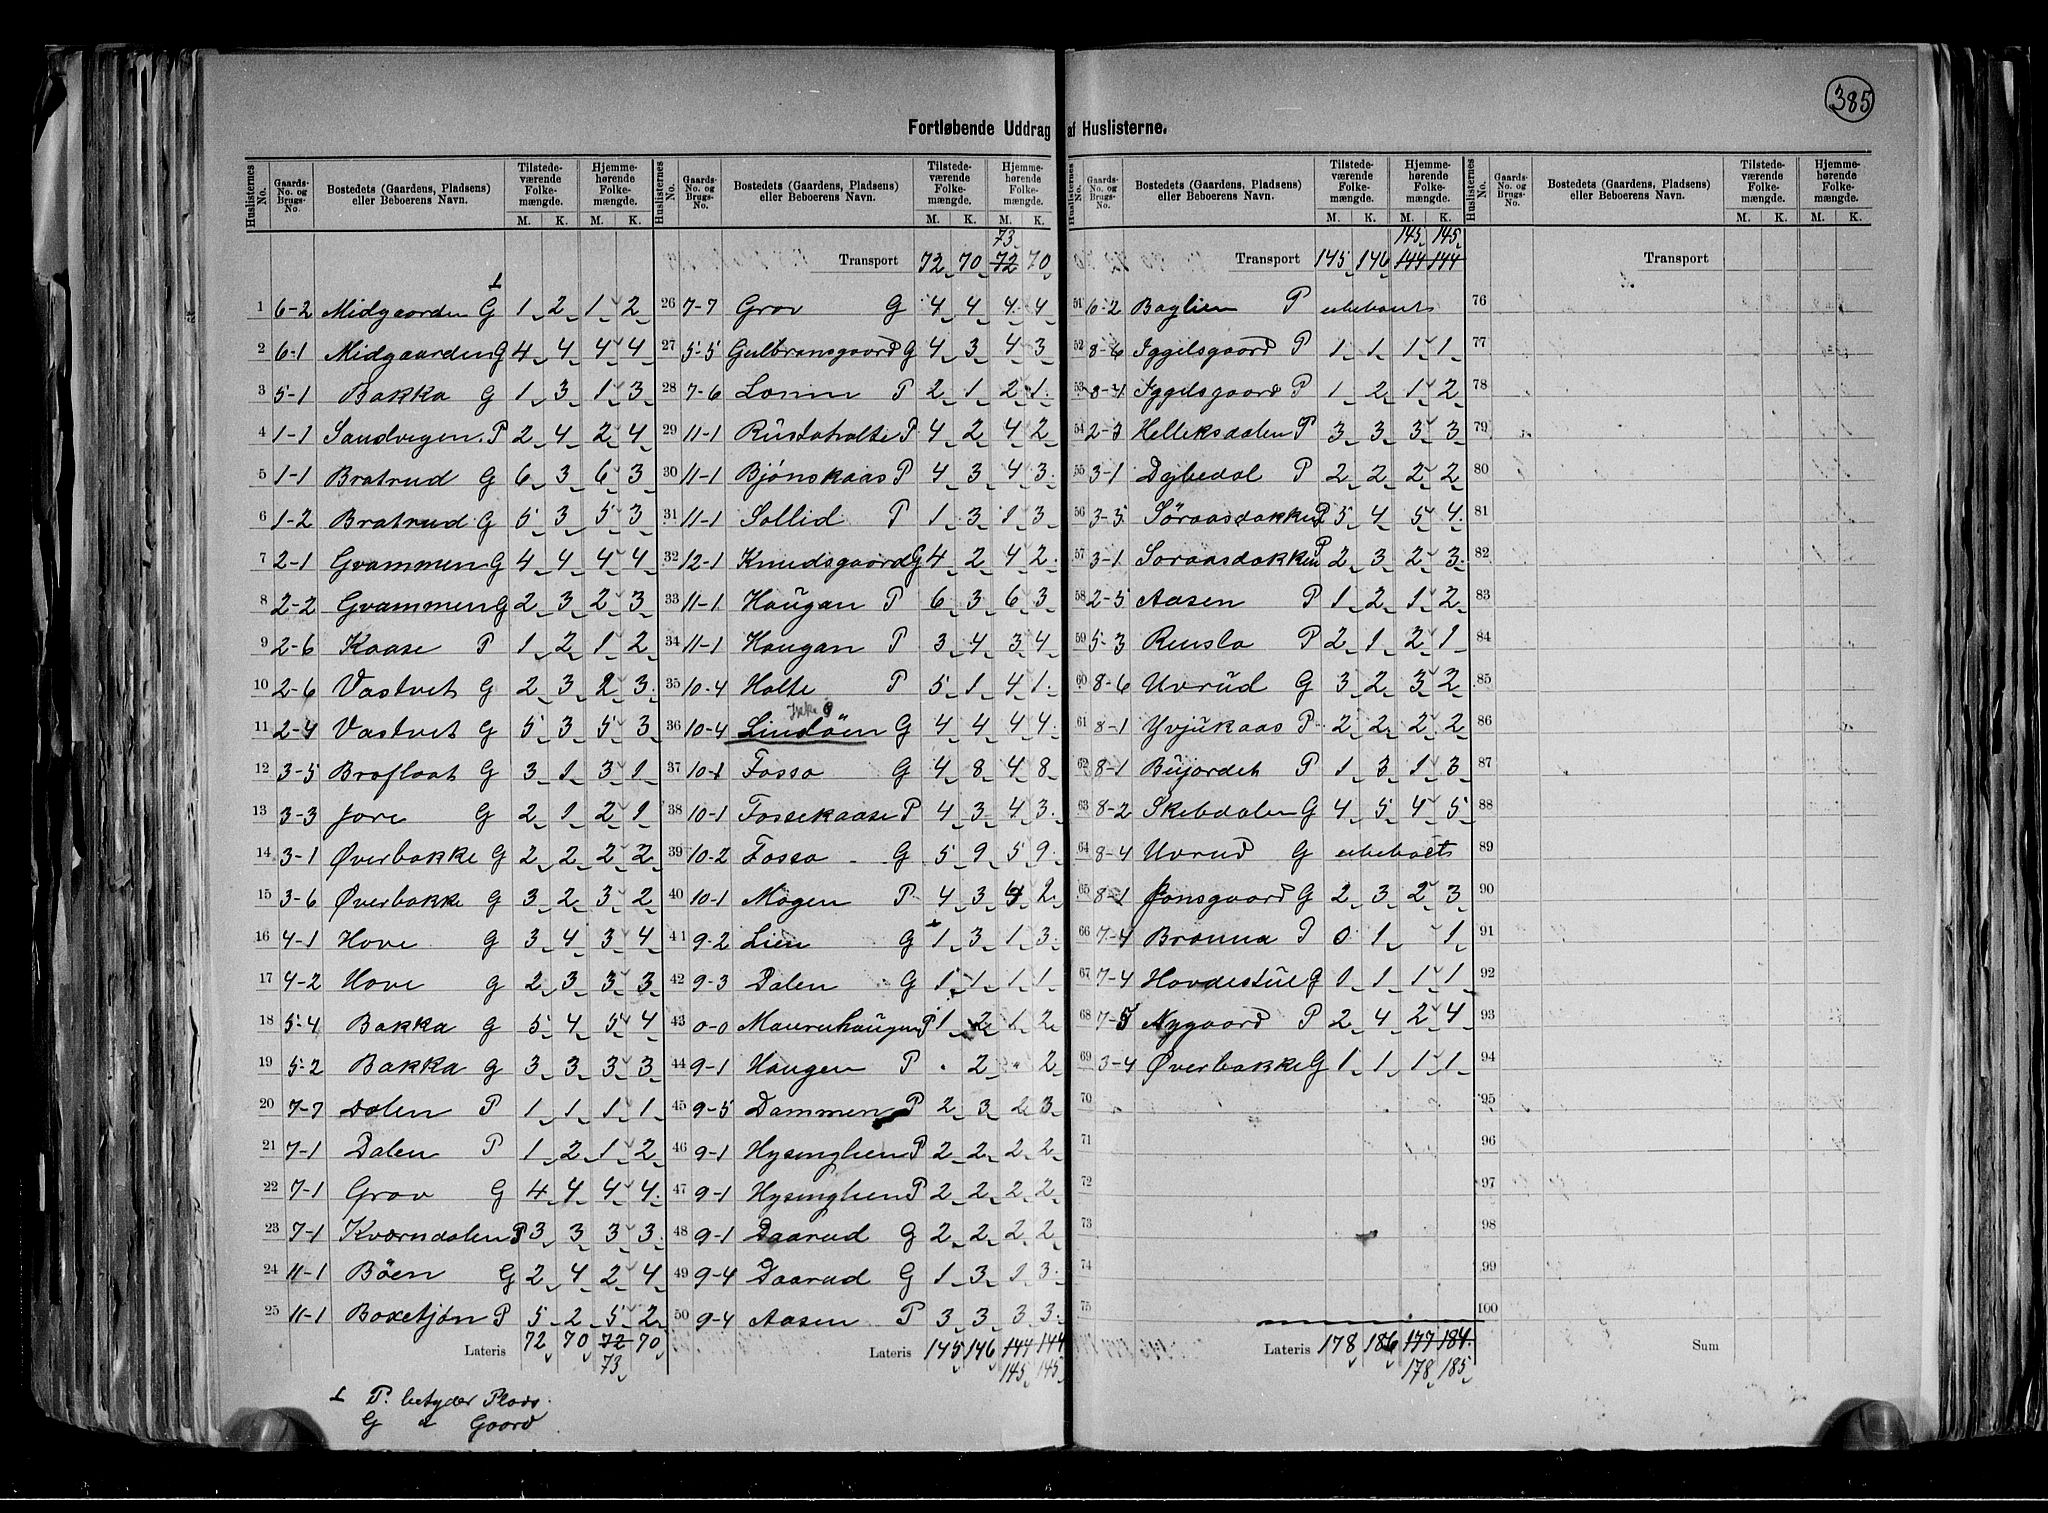 385
Fortløbende Uddrag af Huslisterne.
Huslisternes No. | Gaards-No. og Brugs-No. | Bostedets (Gaardens, Pladsens) eller Beboerens Navn. | Tilstedeværende Folkemængde. M. K. | Hjemmehørende Folkemængde. M. K.
1 6-2 Midgaarden G 1 2 1 2
2 6-1 Midgaarden G 4 4 4 4
3 5-1 Bakka G 1 3 1 3
4 1-1 Sandvigen P 2 4 2 4
5 1-1 Bratrud G 6 3 6 3
6 1-2 Bratrud G 5 3 5 3
7 2-1 Gvammen G 4 4 4 4
8 2-2 Gvammen G 2 3 2 3
9 2-6 Kaase P 1 2 1 2
10 2-6 Vastvet G 2 3 2 3
11 2-4 Vastvet G 5 3 5 3
12 3-5 Brofloat G 3 1 3 1
13 3-3 Jore G 2 1 2 1
14 3-1 Øverbakke G 2 2 2 2
15 3-6 Øverbakke G 3 2 3 2
16 4-1 Hove G 3 4 3 4
17 4-2 Hove G 2 3 3 3
18 5-4 Bakka G 5 4 5 4
19 5-2 Bakka G 3 3 3 3
20 7-7 Dalen P 1 1 1 1
21 7-1 Dalen P 1 2 1 2
22 7-1 Grav G 4 4 4 4
23 7-1 Kværndalen P 3 3 3 3
24 11-1 Böen G 2 4 2 4
25 11-1 Boxetjøn P 5 2 5 2
Lateris 72 70 72 70
73
⊥ P. betyder Plads.
G " Gaard
Huslisternes No. | Gaards-No. og Brugs-No. | Bostedets (Gaardens, Pladsens) eller Beboerens Navn. | Tilstedeværende Folkemængde. M. K. | Hjemmehørende Folkemængde. M. K.
73
Transport 72 70 72 70
26 7-7 Grav G 4 4 4 4
27 5-5 Gulbransgaard G 4 3 4 3
28 7-6 Lonin P 2 1 2 1
29 11-1 Rustaholte P 4 2 4 2
30 11-1 Bjønskaas P 4 3 4 3
31 11-1 Sollid P 1 3 1 3
32 12-1 Knudsgaard G 4 2 4 2
33 11-1 Haugan P 6 3 6 3
34 11-1 Haugan P 3 4 3 4
35 10-4 Holte P 5 1 4 1
36 10-4 Lindöen G 4 4 4 4
37 10-1 Fosso G 4 8 4 8
38 10-1 Fossekaase P 4 3 4 3
39 10-2 Fosso G 5 9 5 9
40 10-1 Mogen P 4 3 4 2
41 9-2 Lien G 1 3 1 3
42 9-3 Dalen G 1 1 1 1
43 0-0 Maurenhaugen P 1 2 1 2
44 9-1 Haugen P . 2 2
45 9-5 Dammen P 2 3 2 3
46 9-1 Hysinglien P 2 2 2 2
47 9-1 Hysinglien P 2 2 2 2
48 9-1 Daarud G 2 2 2 2
49 9-4 Daarud G 1 3 1 3
50 9-4 Aasen P 3 3 3 3
Lateris 145 146 144 144
145 145
Huslisternes No. | Gaards-No. og Brugs-No. | Bostedets (Gaardens, Pladsens) eller Beboerens Navn. | Tilstedeværende Folkemængde. M. K. | Hjemmehørende Folkemængde. M. K.
145 145
Transport 145 146 144 144
51 6-2 Baglien P ubeboet
52 8-6 Iggelsgaard P 1 1 1 1
53 8-4 Iggelsgaard P 1 2 1 2
54 2-3 Helleksdalen P 3 3 3 3
55 3-1 Dybedal P 2 2 2 2
56 3-5 Søraasdakken P 5 4 5 4
57 3-1 Soraasdakken P 2 3 2 3
58 2-5 Aasen P 1 2 1 2
59 5-3 Rinslo P 2 1 2 1
60 8-6 Uvrud G 3 2 3 2
61 8-1 Yvjukaas P 2 2 2 2
62 8-1 Bujordet P 1 3 1 3
63 8-2 Skebdalen G 4 5 4 5
64 8-4 Uvrud G ubeboet
65 8-1 Jonsgaard G 2 3 2 3
66 7-4 Bronna P 0 1 1
67 7-4 Hovdestul G 1 1 1 1
68 7-5 Nygaard P 2 4 2 4
69 3-4 Øverbakke G 1 1 1 1
70
71
72
73
74
75
Lateris 178 186 177 184
178 185
Huslisternes No. | Gaards-No. og Brugs-No. | Bostedets (Gaardens, Pladsens) eller Beboerens Navn. | Tilstedeværende Folkemængde. M. K. | Hjemmehørende Folkemængde. M. K.
Transport
76
77
78
79
80
81
82
83
84
85
86
87
88
89
90
91
92
93
94
95
96
97
98
99
100
Sum